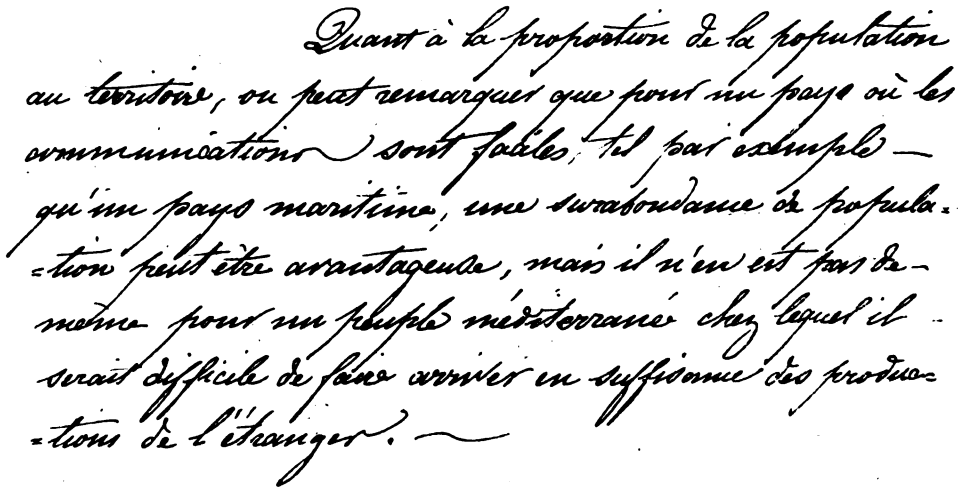 Quant à la proportion de la population
au territoire, on peut remarquer que pour un pays où les
communications sont faciles, tel par exemple —
qu'un pays maritime, une surabondance de popula=
=tion peut être avantageuse, mais il n'en est pas de —
même pour un peuple méditerrané chez lequel il
serait difficile de faire arriver en suffisance des produc=
=tions de l'étranger. —